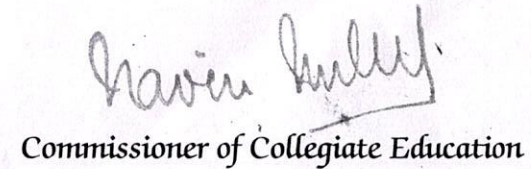 Navin
Commissioner of Collegiate Education